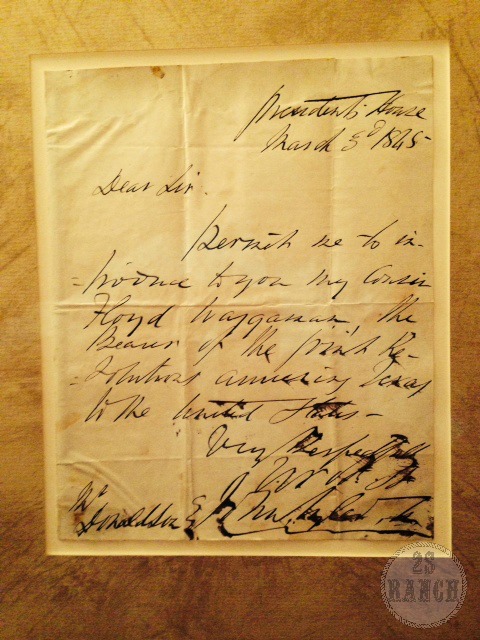 Presidents House
March 3d 1845
Dear Sir.
Permit me to in-
=troduce to you my Cousin
Floyd Waggaman, the
Bearer of the joint Re-
=solutions annexing Texas
to the United States -
Very Respectfully
Mr
Donaldson
2S
RANCH